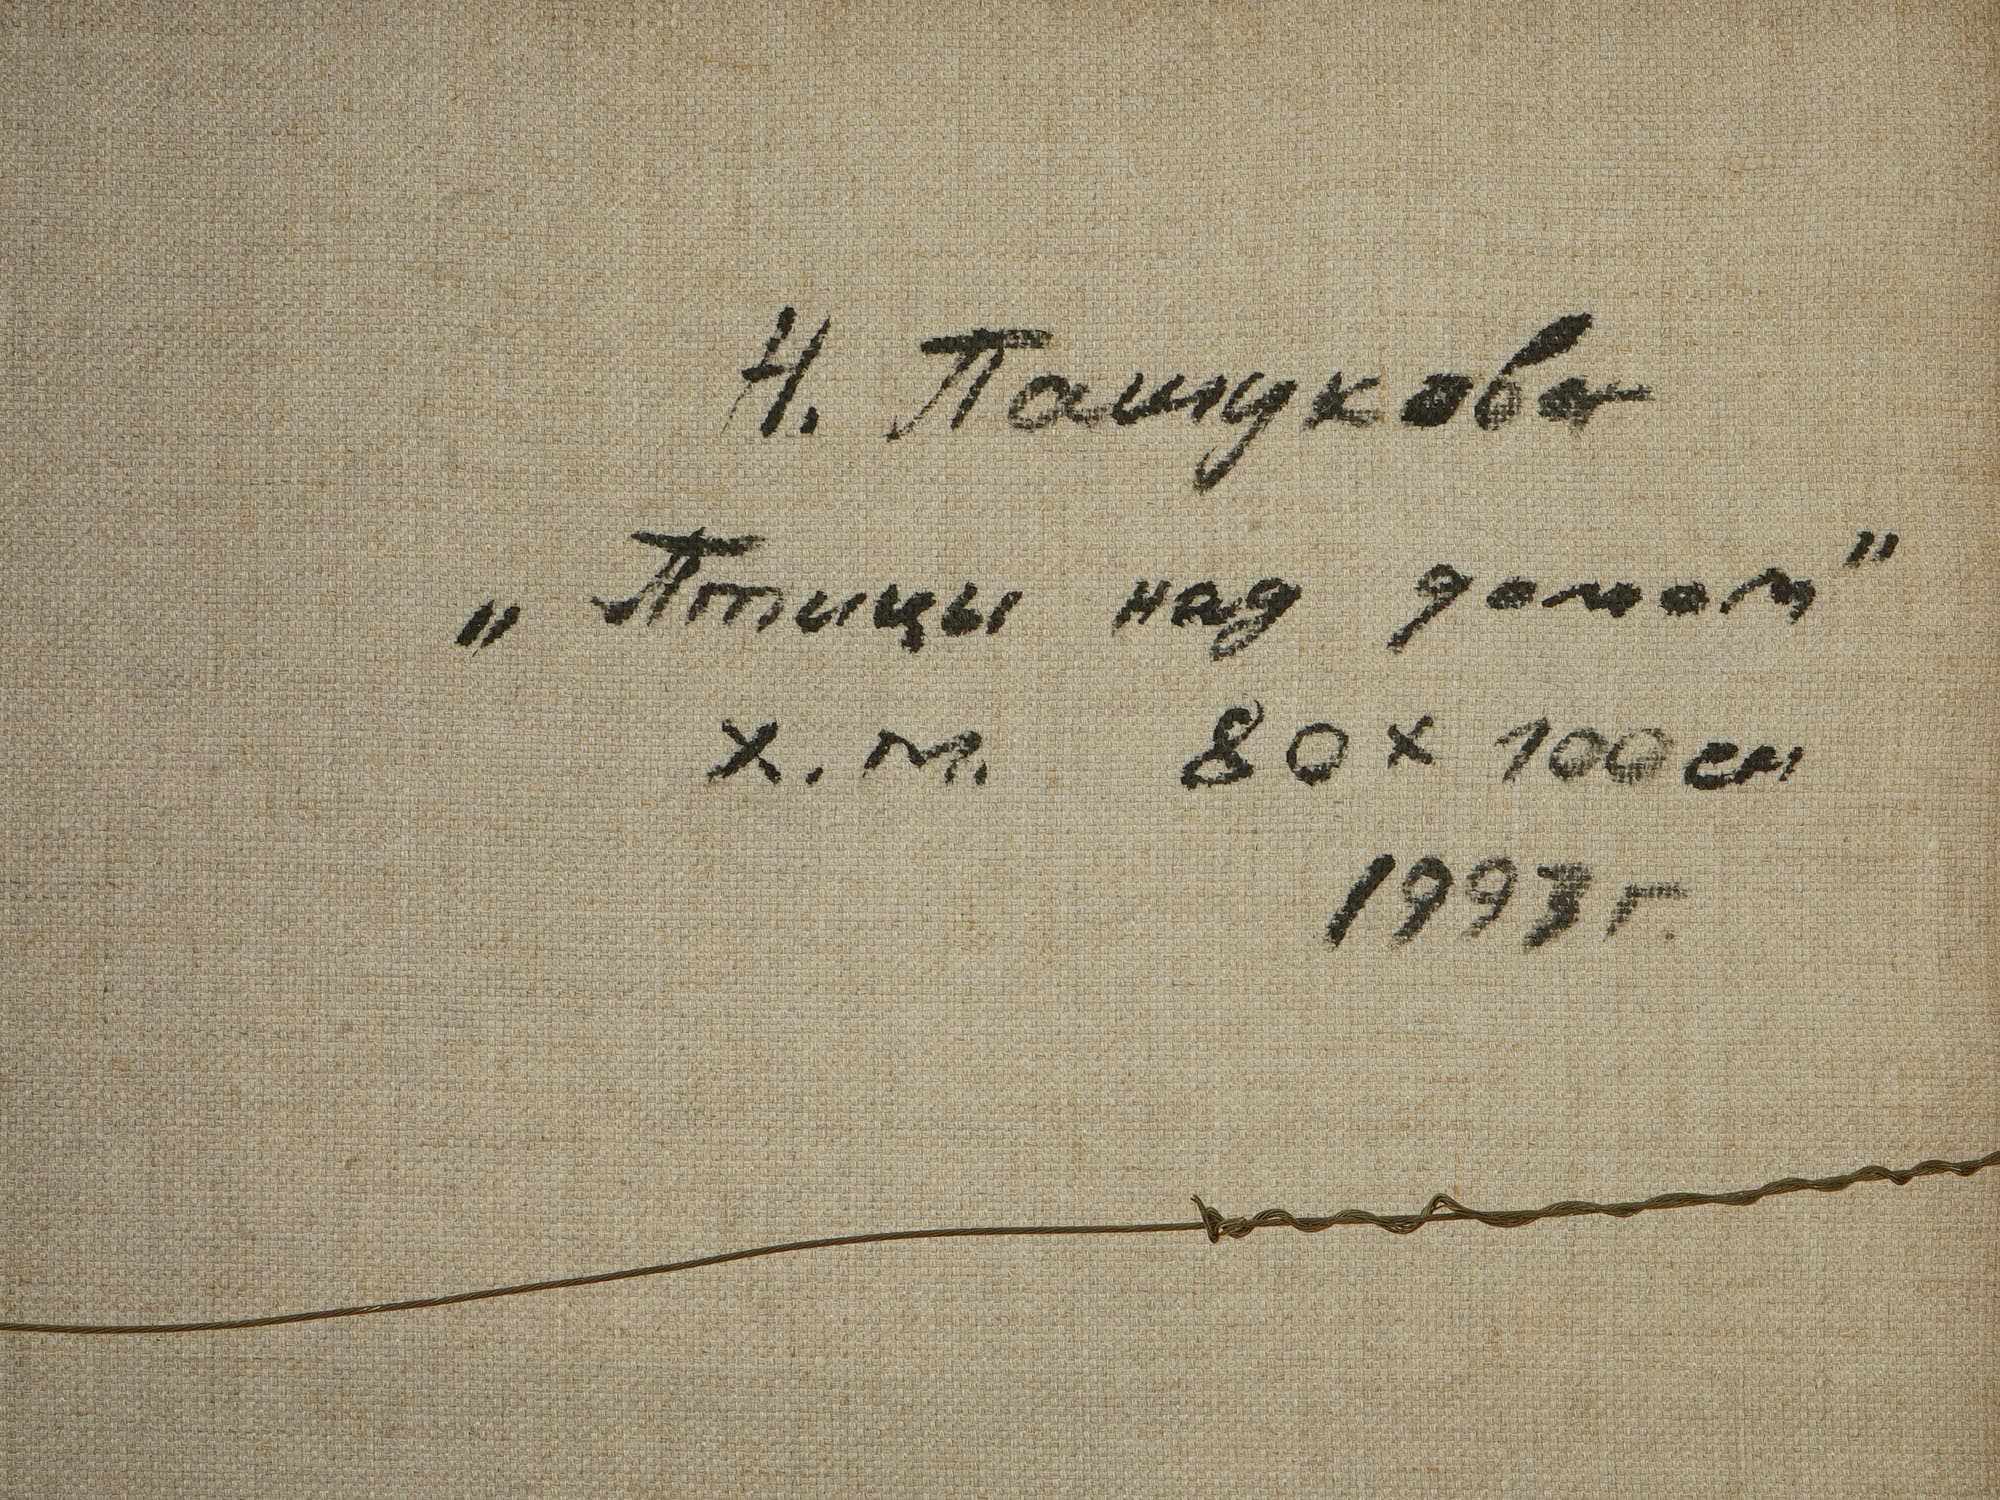 Н. Пашукова
„Птицы над домом"
х.м. 80 х 100 см
1993 г.